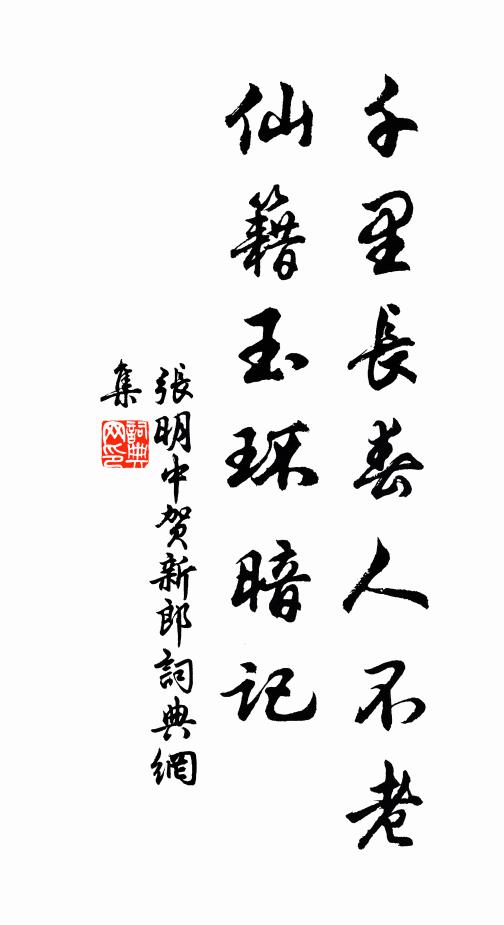 千里長春人不老
仙籍玉环暗記
張明中贺新郎詞典網
集
詞典
网印